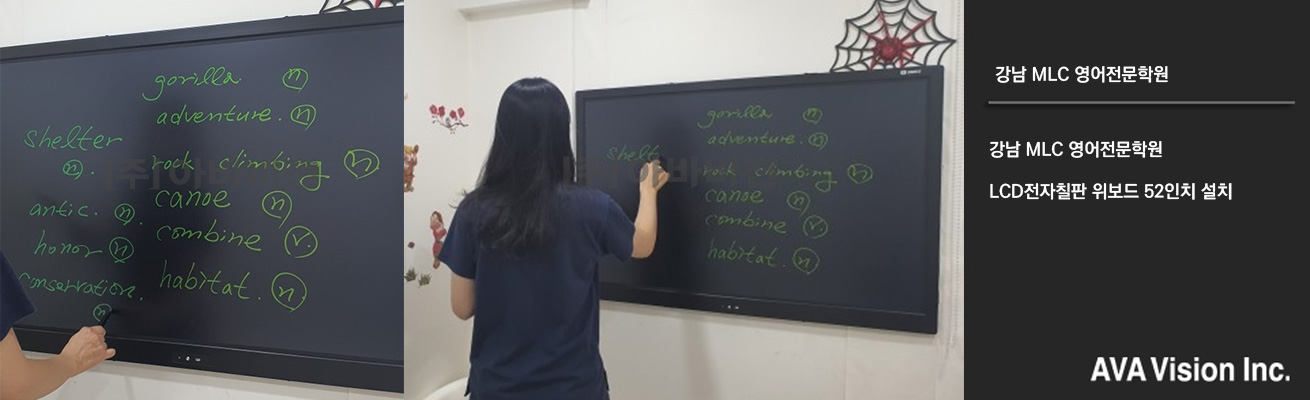 gorilla (n)
adventure. (n)
shelter
(n).
rock climbing (n)
antic. (n).
canoe (n)
honor (n)
combine (v.)
conservation.
(n)
habitat. (n)
[주]아바
gorilla (n)
adventure. (n)
shelt
rock climbing (n)
canoe (n)
combine (v.)
habitat. (n)
강남 MLC 영어전문학원
강남 MLC 영어전문학원
LCD전자칠판 위보드 52인치 설치
AVA Vision Inc.